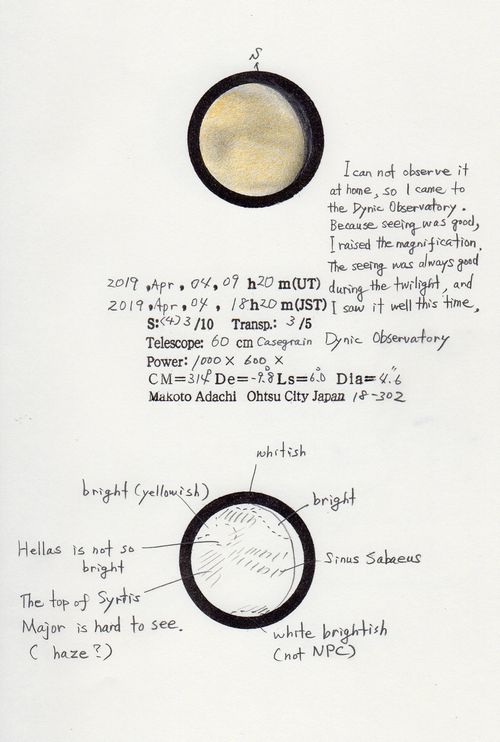 S
I can not observe it
at home, so I came to
the Dynic Observatory.
Because seeing was good,
I raised the magnification.
The seeing was always good
during the twilight, and
I saw it well this time.
2019, Apr, 04, 09 h20 m(UT)
2019, Apr, 04, 18h20 m(JST)
S:(4)3/10 Transp.: 3/5
Telescope: 60 cm Casegrain Dynic Observatory
Power: 1000× 600×
CM=314° De=-9.8° Ls=6.0° Dia=4".6
Makoto Adachi Ohtsu City Japan 18-302
whitish
bright (yellowish)
bright
Hellas is not so
bright
Sinus Sabaeus
The top of Syrtis
Major is hard to see.
( haze?)
white brightish
(not NPC)